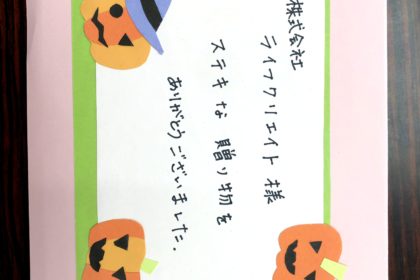 株式会社
ライフクリエイト様
ステキな贈り物を
ありがとうございました.